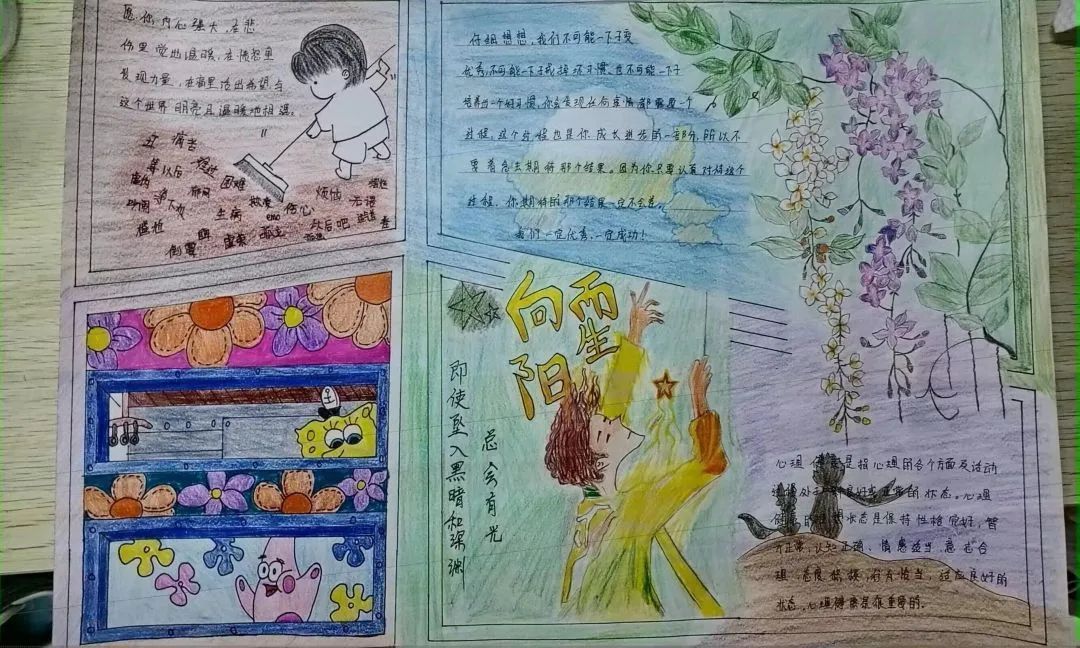 愿你内心强大,在悲
伤里觉出温暖,在愤怒里
发现力量,在痛里活出希望与
这个世界明亮且温暖地相遇。
丑 痛苦
等以后 难过
困难
烦恼
放下吧
生病
emo 伤心
尴尬
虚荣
然后吧
倒霉
仔细想想,我们不可能一下子变
优秀,不可能一下子戒掉坏习惯,也不可能一下子
培养出一个好习惯,你会发现任何事情都需要一个
过程,这个过程也是你成长进步的一部分,所以不
要着急去期待那个结果。因为你只要认真对待这个
过程,你期待的那个结果一定不会差。
我们一定优秀,一定成功!
向阳
而生
即使坠入黑暗和深渊
总会有光
心理健康是指心理的各个方面及活动
过程处于一种良好或正常的状态。心理
健康的理想状态是保持性格完好,智
力正常,认知正确,情感适当,意志合
理,态度积极,行为恰当,适应良好的
状态,心理健康是很重要的。